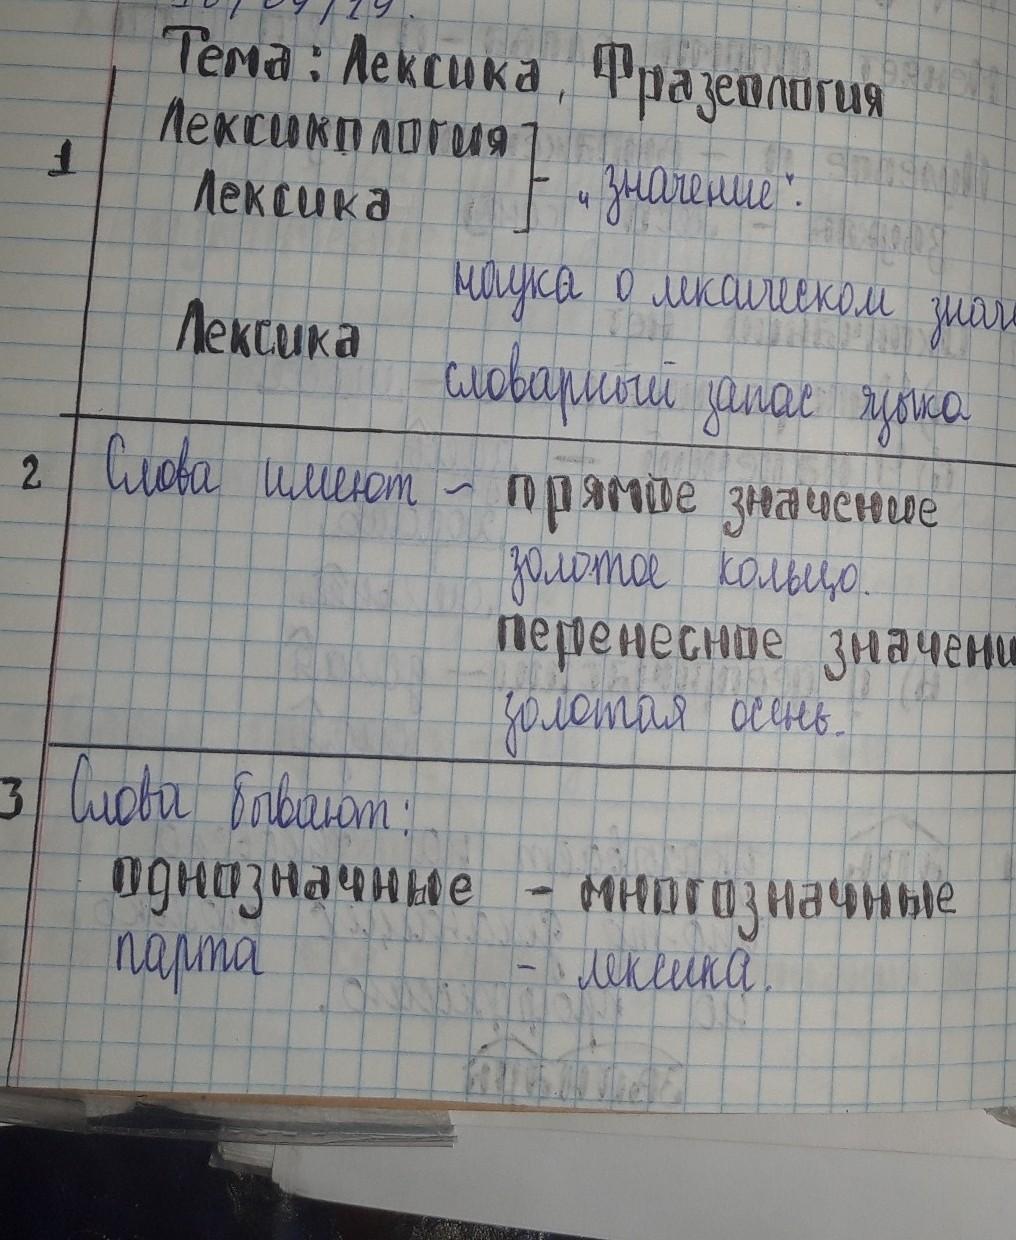 Тема: Лексика, Фразеология
Лексикология
1
Лексика
„значение“:
наука о лексическом знач
Лексика
словарный запас языка
2 Слова имеют – прямое значение
золотое кольцо.
перенесное значени
золотая осень.
3 Слова бывают:
однозначные – многозначные
парта – лексика.